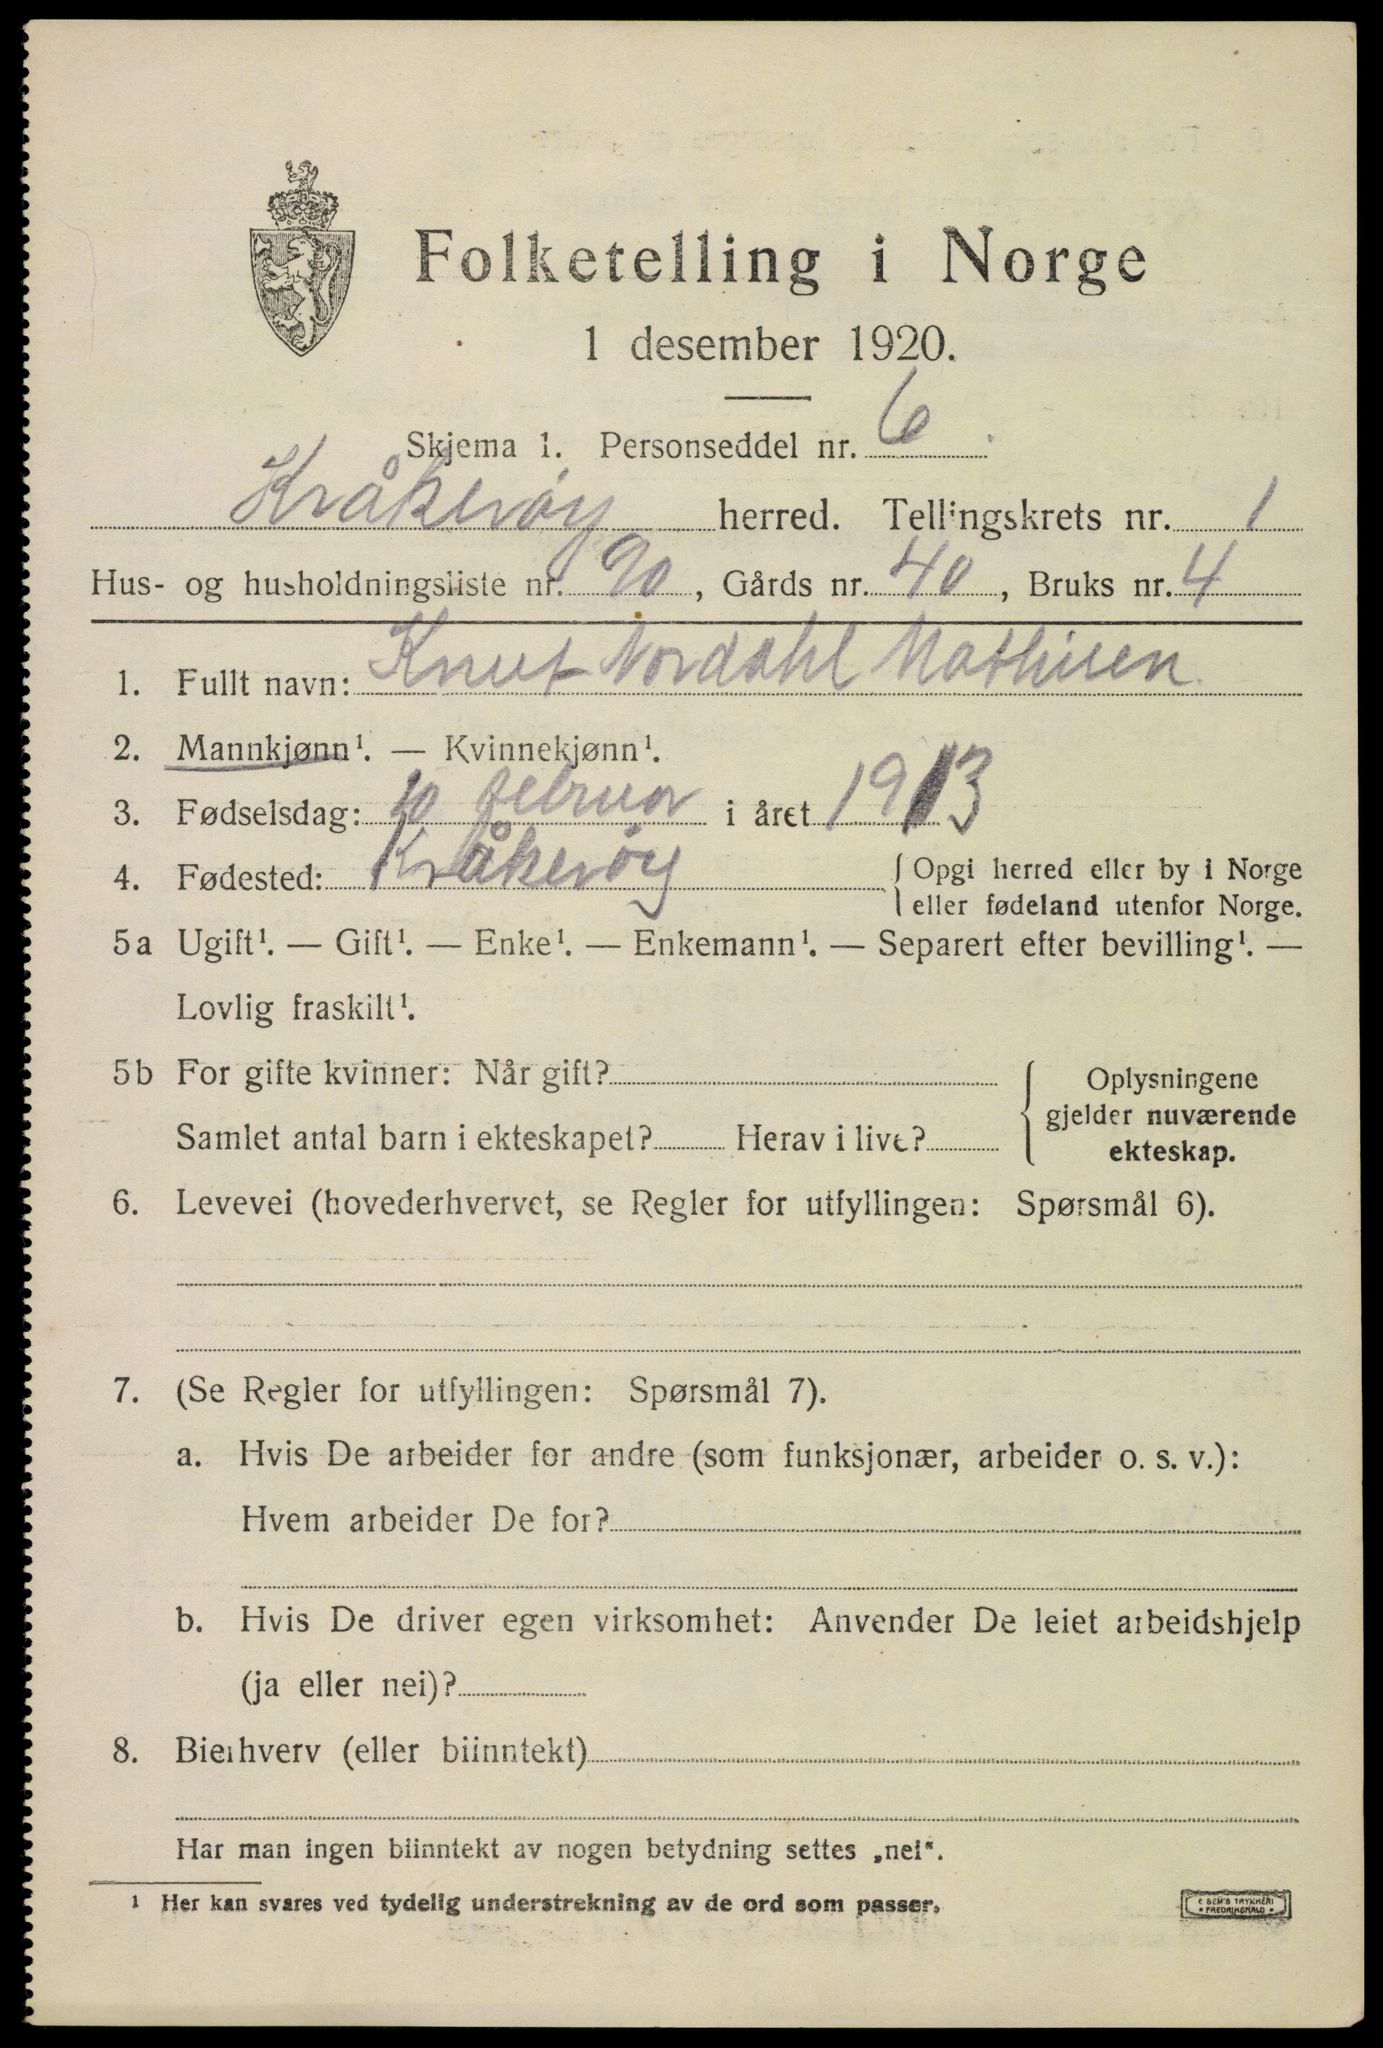 Folketelling i Norge
1 desember 1920.
Skjema 1. Personseddel nr. 6.
Kråkerøy herred. Tellingskrets nr. 1
Hus- og husholdningsliste nr. 90, Gårds nr. 40, Bruks nr. 4
1. Fullt navn: Knut Nordahl Mathisen
2. Mannkjønn¹. — Kvinnekjønn¹.
3. Fødselsdag: 10 februar i året 1913
4. Fødested: Kråkerøy { Opgi herred eller by i Norge
eller fødeland utenfor Norge.
5a Ugift¹. — Gift¹. — Enke¹. — Enkemann¹. — Separert efter bevilling¹. —
Lovlig fraskilt¹.
5b For gifte kvinner: Når gift?
Samlet antal barn i ekteskapet? Herav i live?
{ Oplysningene
gjelder nuværende
ekteskap.
6. Levevei (hovederhvervet, se Regler for utfyllingen: Spørsmål 6).
7. (Se Regler for utfyllingen: Spørsmål 7).
a. Hvis De arbeider for andre (som funksjonær, arbeider o. s. v.):
Hvem arbeider De for?
b. Hvis De driver egen virksomhet: Anvender De leiet arbeidshjelp
(ja eller nei)?
8. Bierhverv (eller biinntekt)
Har man ingen biinntekt av nogen betydning settes „nei“.
¹ Her kan svares ved tydelig understrekning av de ord som passer.
E SEM'S TRYKKERI
• FREDRIKSHALD •